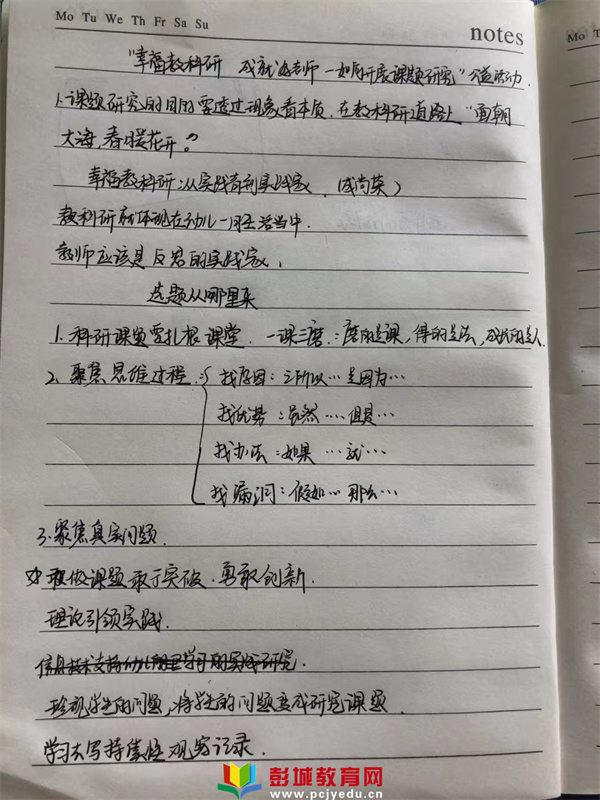 Mo Tu We Th Fr Sa Su
notes
Mo T
"幸福教科研 成就好老师—如何开展课题研究"公益活动.
1.课题研究的目的要透过现象看本质.在教科研道路上"面朝
大海,春暖花开"
幸福教科研:从实践者到实践家.(戚尚英)
教科研就体现在幼儿一日生活当中.
教师应该是反思的实践家.
选题从哪里来
1.科研课题要扎根课堂.一课三磨.:磨的是课,得的是法,成长的是人.
2.聚焦思维过程:
找原因:之所以…是因为…
找优势:虽然…但是…
找办法:如果…就…
找漏洞:假如…那么…
3.聚焦真实问题.
敢做课题敢于突破.勇敢创新.
理论引领实践.
信息技术支持幼儿 学习的实践研究.
珍视学生的问题,将学生的问题变成研究课题.
学习 写 观察记录.
彭城教育网
www.pcjyedu.cn